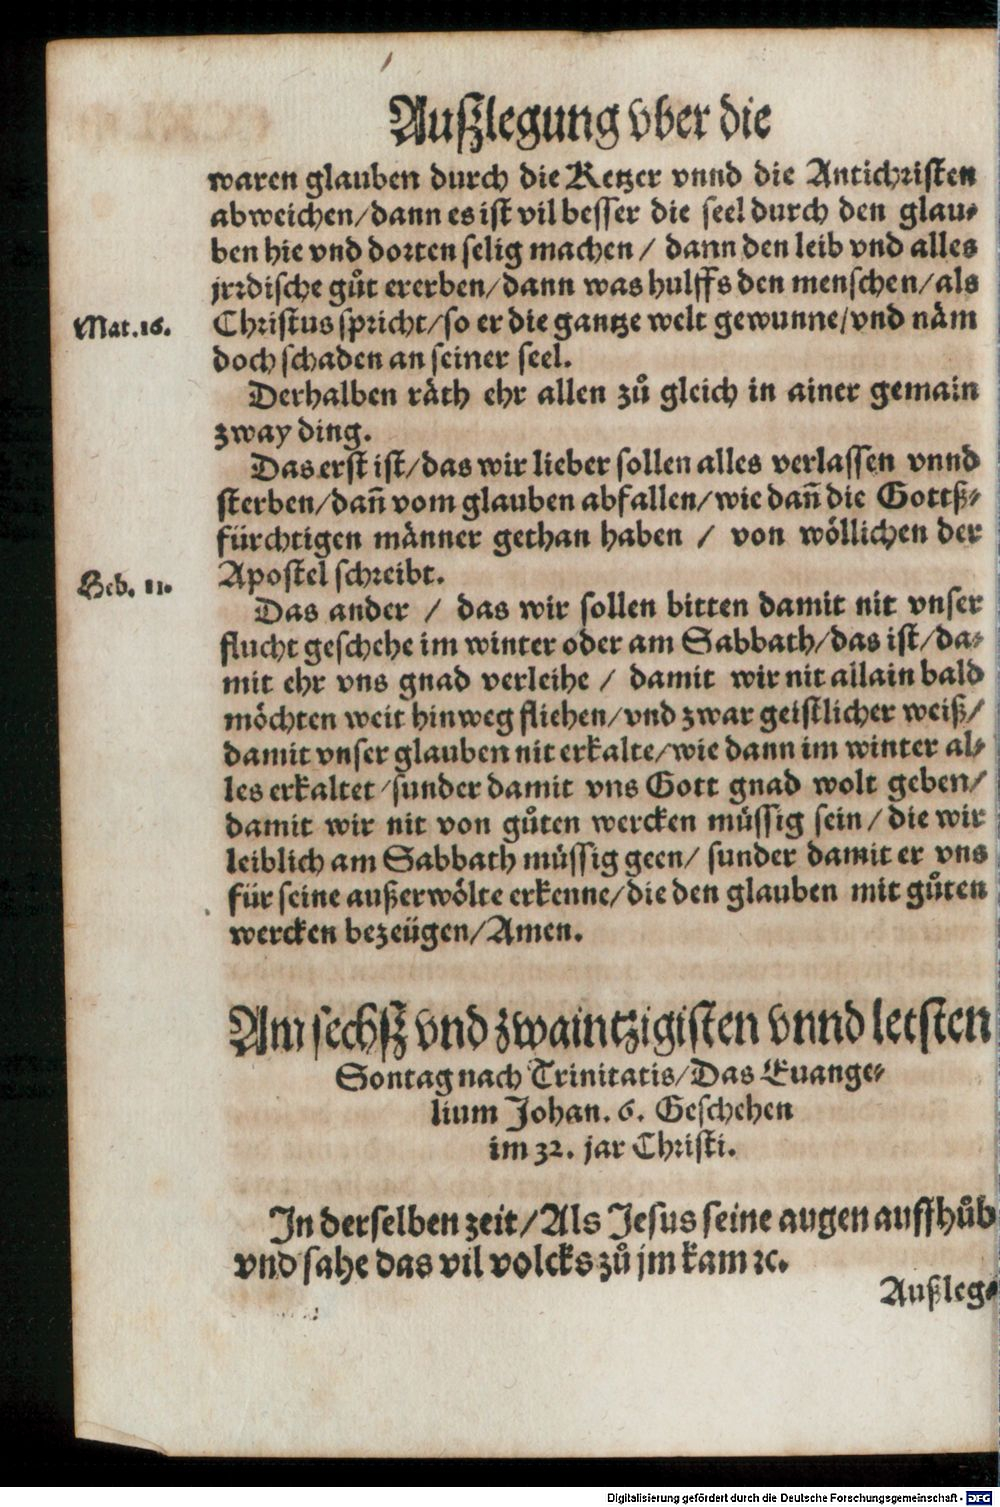 Außlegung vber die
waren glauben durch die Ketzer vnnd die Antichristen
abweichen/dann es ist vil besser die seel durch den glau-
ben hie vnd dorten selig machen / dann den leib vnd alles
jrrdische gůt ererben/dann was hulffs den menschen/als
Mat.16. Christus spricht/so er die gantze welt gewunne/vnd näm
doch schaden an seiner seel.
Derhalben räth ehr allen zů gleich in ainer gemain
zway ding.
Das erst ist/das wir lieber sollen alles verlassen vnnd
sterben/dañ vom glauben abfallen/wie dañ die Gottß-
fürchtigen männer gethan haben / von wöllichen der
Heb. 11. Apostel schreibt.
Das ander / das wir sollen bitten damit nit vnser
flucht geschehe im winter oder am Sabbath/das ist/da-
mit ehr vns gnad verleihe / damit wir nit allain bald
möchten weit hinweg fliehen/vnd zwar geistlicher weiß/
damit vnser glauben nit erkalte/wie dann im winter al-
les erkaltet/sunder damit vns Gott gnad wolt geben/
damit wir nit von gůten wercken müssig sein/die wir
leiblich am Sabbath müssig geen/ sunder damit er vns
für seine außerwölte erkenne/die den glauben mit gůten
wercken bezeügen/Amen.
Am sechsß vnd zwaintzigisten vnnd letsten
Sontag nach Trinitatis/Das Euange-
lium Johan. 6. Geschehen
im 32. jar Christi.
In derselben zeit/Als Jesus seine augen auffhůb
vnd sahe das vil volcks zů jm kam ꝛc.
Außleg-
Digitalisierung gefördert durch die Deutsche Forschungsgemeinschaft - DFG